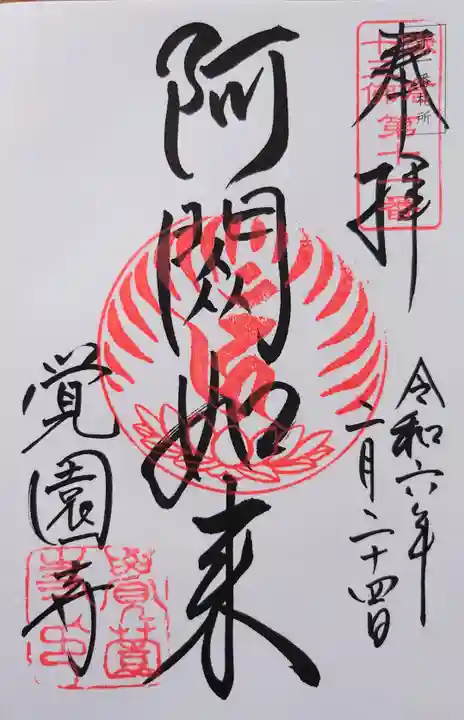 奉拝
鎌倉
十三佛第十一番
番札所
令和六年
二月二十四日
阿閦如来
覚園寺